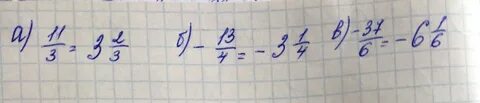 а) 11/3 = 3 2/3 б) - 13/4 = - 3 1/4 в) -37/6 = - 6 1/6